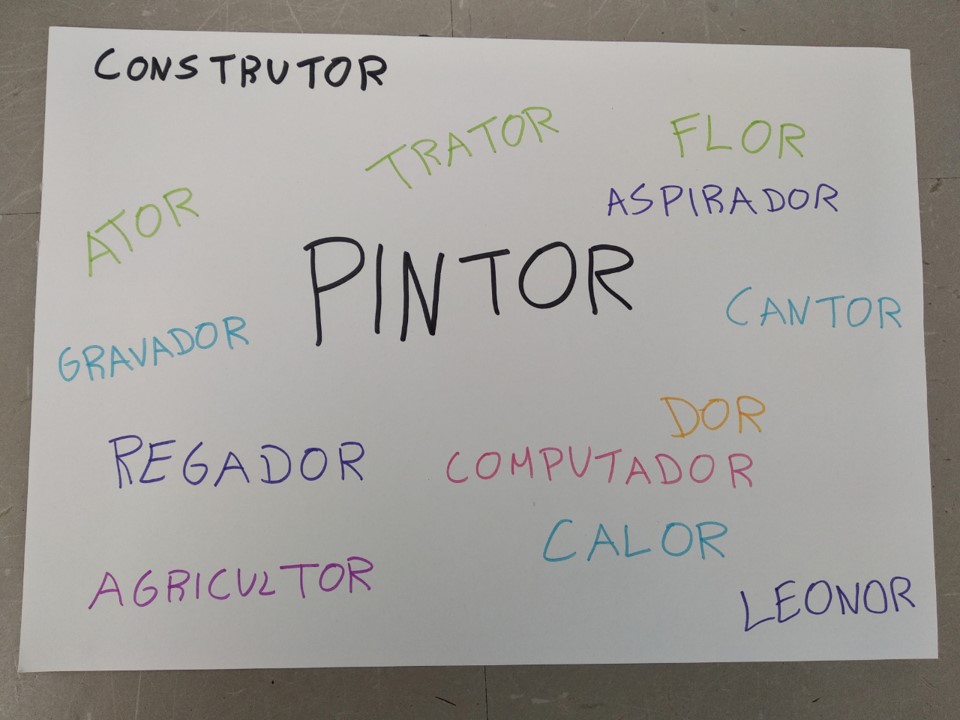 CONSTRUTOR
TRATOR
FLOR
ASPIRADOR
ATOR
PINTOR
CANTOR
GRAVADOR
DOR
REGADOR
COMPUTADOR
CALOR
AGRICULTOR
LEONOR